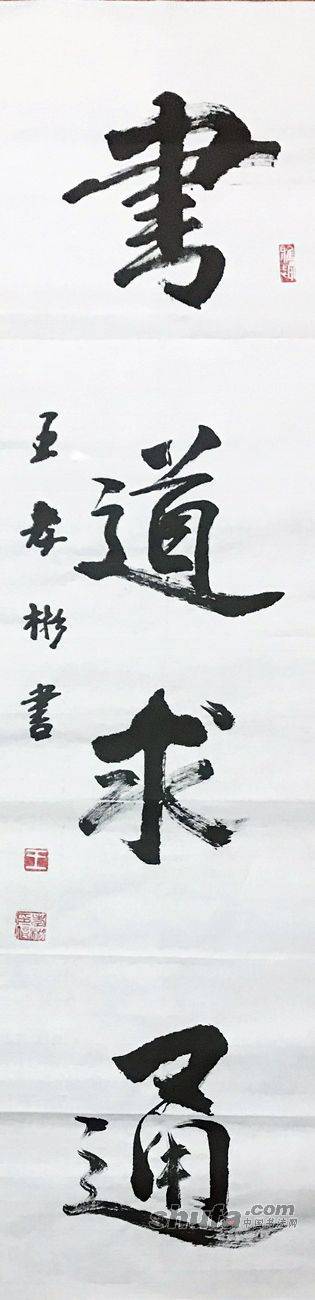 書道求通
王孝彬書
王
shufa.com
中国书法网